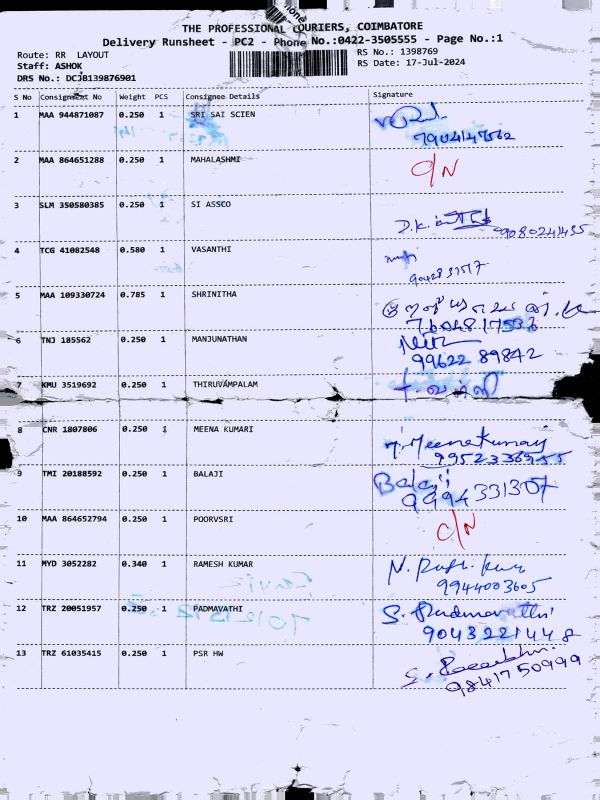 THE PROFESSIONAL COURIERS, COIMBATORE
Delivery Runsheet - PC2 - Phone No.:0422-3505555 - Page No.:1
Route: RR LAYOUT
RS No.: 1398769
Staff: ASHOK
RS Date: 17-Jul-2024
DRS No.: DCJB139876901
S No Consignment No Weight PCS Consignee Details Signature
1 MAA 944871087 0.250 1 SRI SAI SCIEN
7904147562
2 MAA 864651288 0.250 1 MAHALASHMI C/N
3 SLM 350580385 0.250 1 SI ASSCO
D.K.
9080241435
4 TCG 41082548 0.580 1 VASANTHI
9042831517
5 MAA 109330724 0.785 1 SHRINITHA
6 TNJ 185562 0.250 1 MANJUNATHAN
99622 89842
7 KMU 3519692 0.250 1 THIRUVAMPALAM
8 CNR 1807806 0.250 1 MEENA KUMARI
Meenakumari
9 TMI 20188592 0.250 1 BALAJI Balaji
9994331307
10 MAA 864652794 0.250 1 POORVSRI C/N
11 MYD 3052282 0.340 1 RAMESH KUMAR
9944003605
12 TRZ 20051957 0.250 1 PADMAVATHI S. Padmavathi
9043221448
13 TRZ 61035415 0.250 1 PSR HW
9841750999